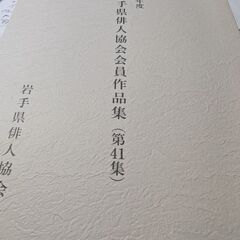 年度
手県俳人協会会員作品集(第41集)
岩手県俳人協会